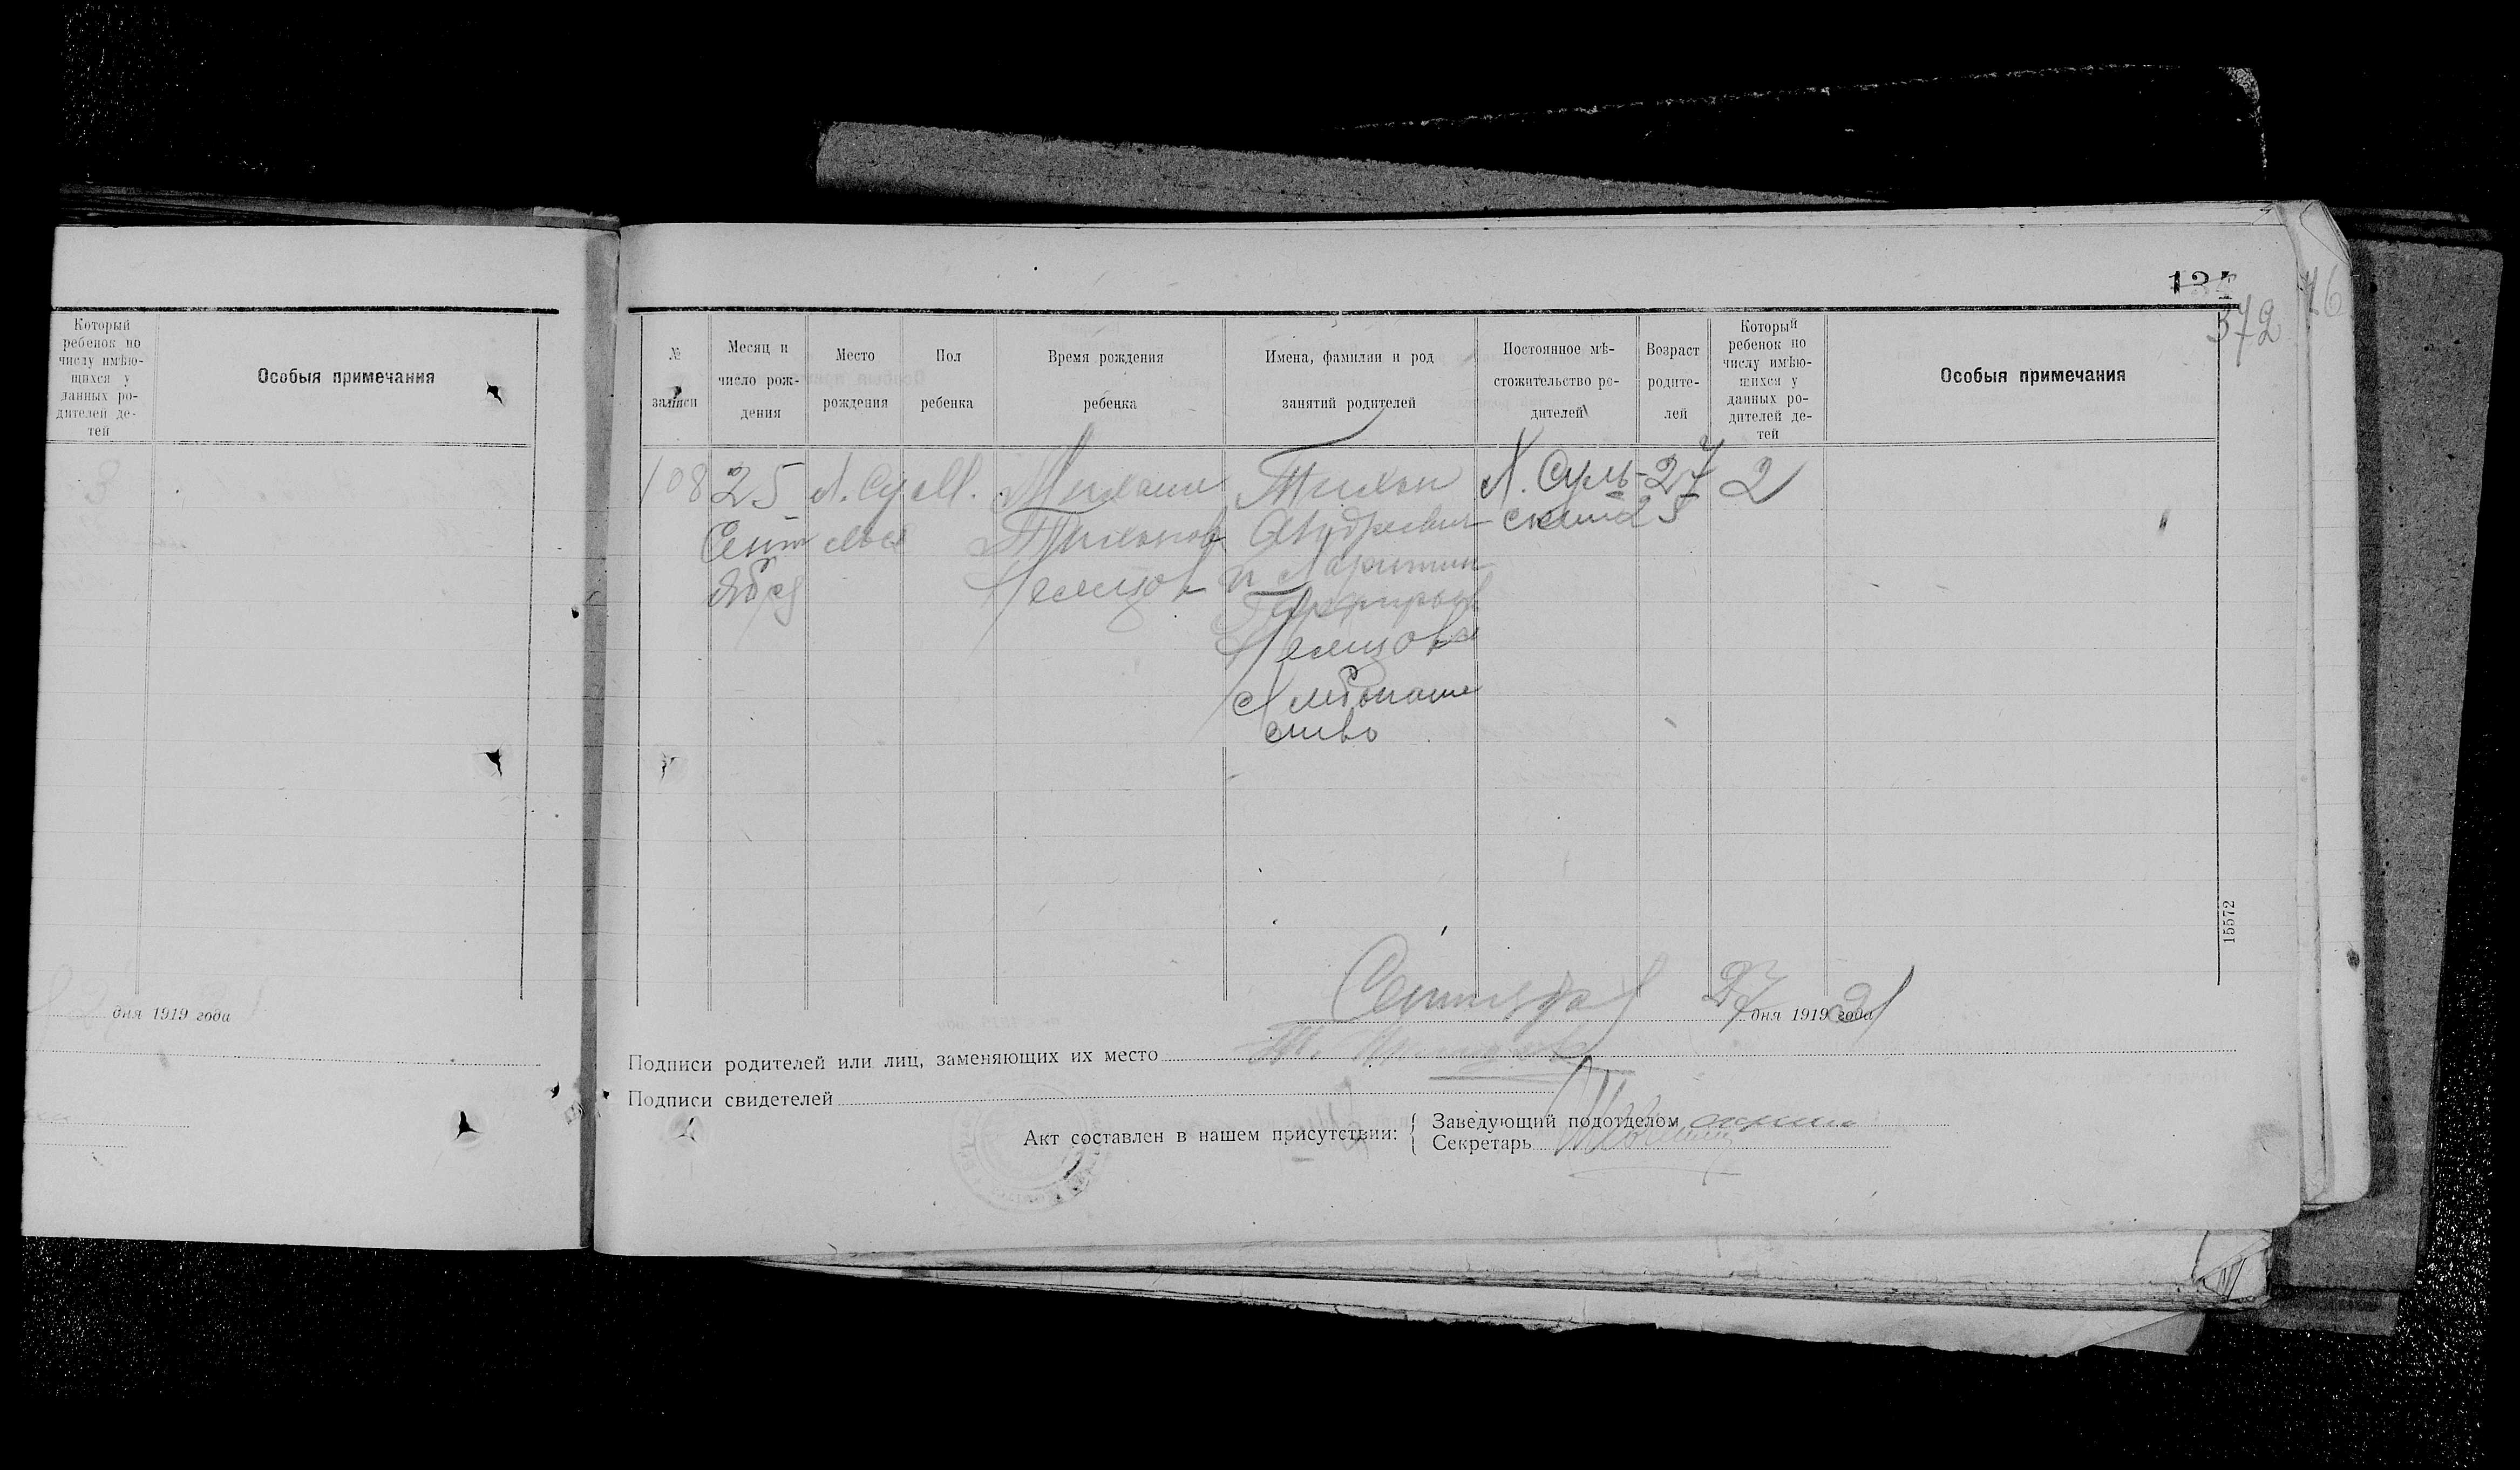 Который
ребенок по
числу имѣю-
щихся у
данных ро-
дителей де-
тей
Особыя примечания
3
дня 1919 года
134
372
76
№
записи
Месяц и
число рож-
дения
Место
рождения
Пол
ребенка
Время рождения
ребенка
Имена, фамилии и род
занятий родителей
Постоянное мѣ-
стожительство ро-
дителей
Возраст
родите-
лей
Который
ребенок по
числу имѣю-
щихся у
данных ро-
дителей де-
тей
Особыя примечания
108 25 М. Тихон 27 2
Сент Тихонов Андреевич 25
ября Немцов и
Немцовы
Хлебопаше
ство
15572
Сентября 27 дня 1919 года 21
Подписи родителей или лиц, заменяющих их место
Подписи свидетелей
Акт составлен в нашем присутствии:
Заведующий подотделом
Секретарь